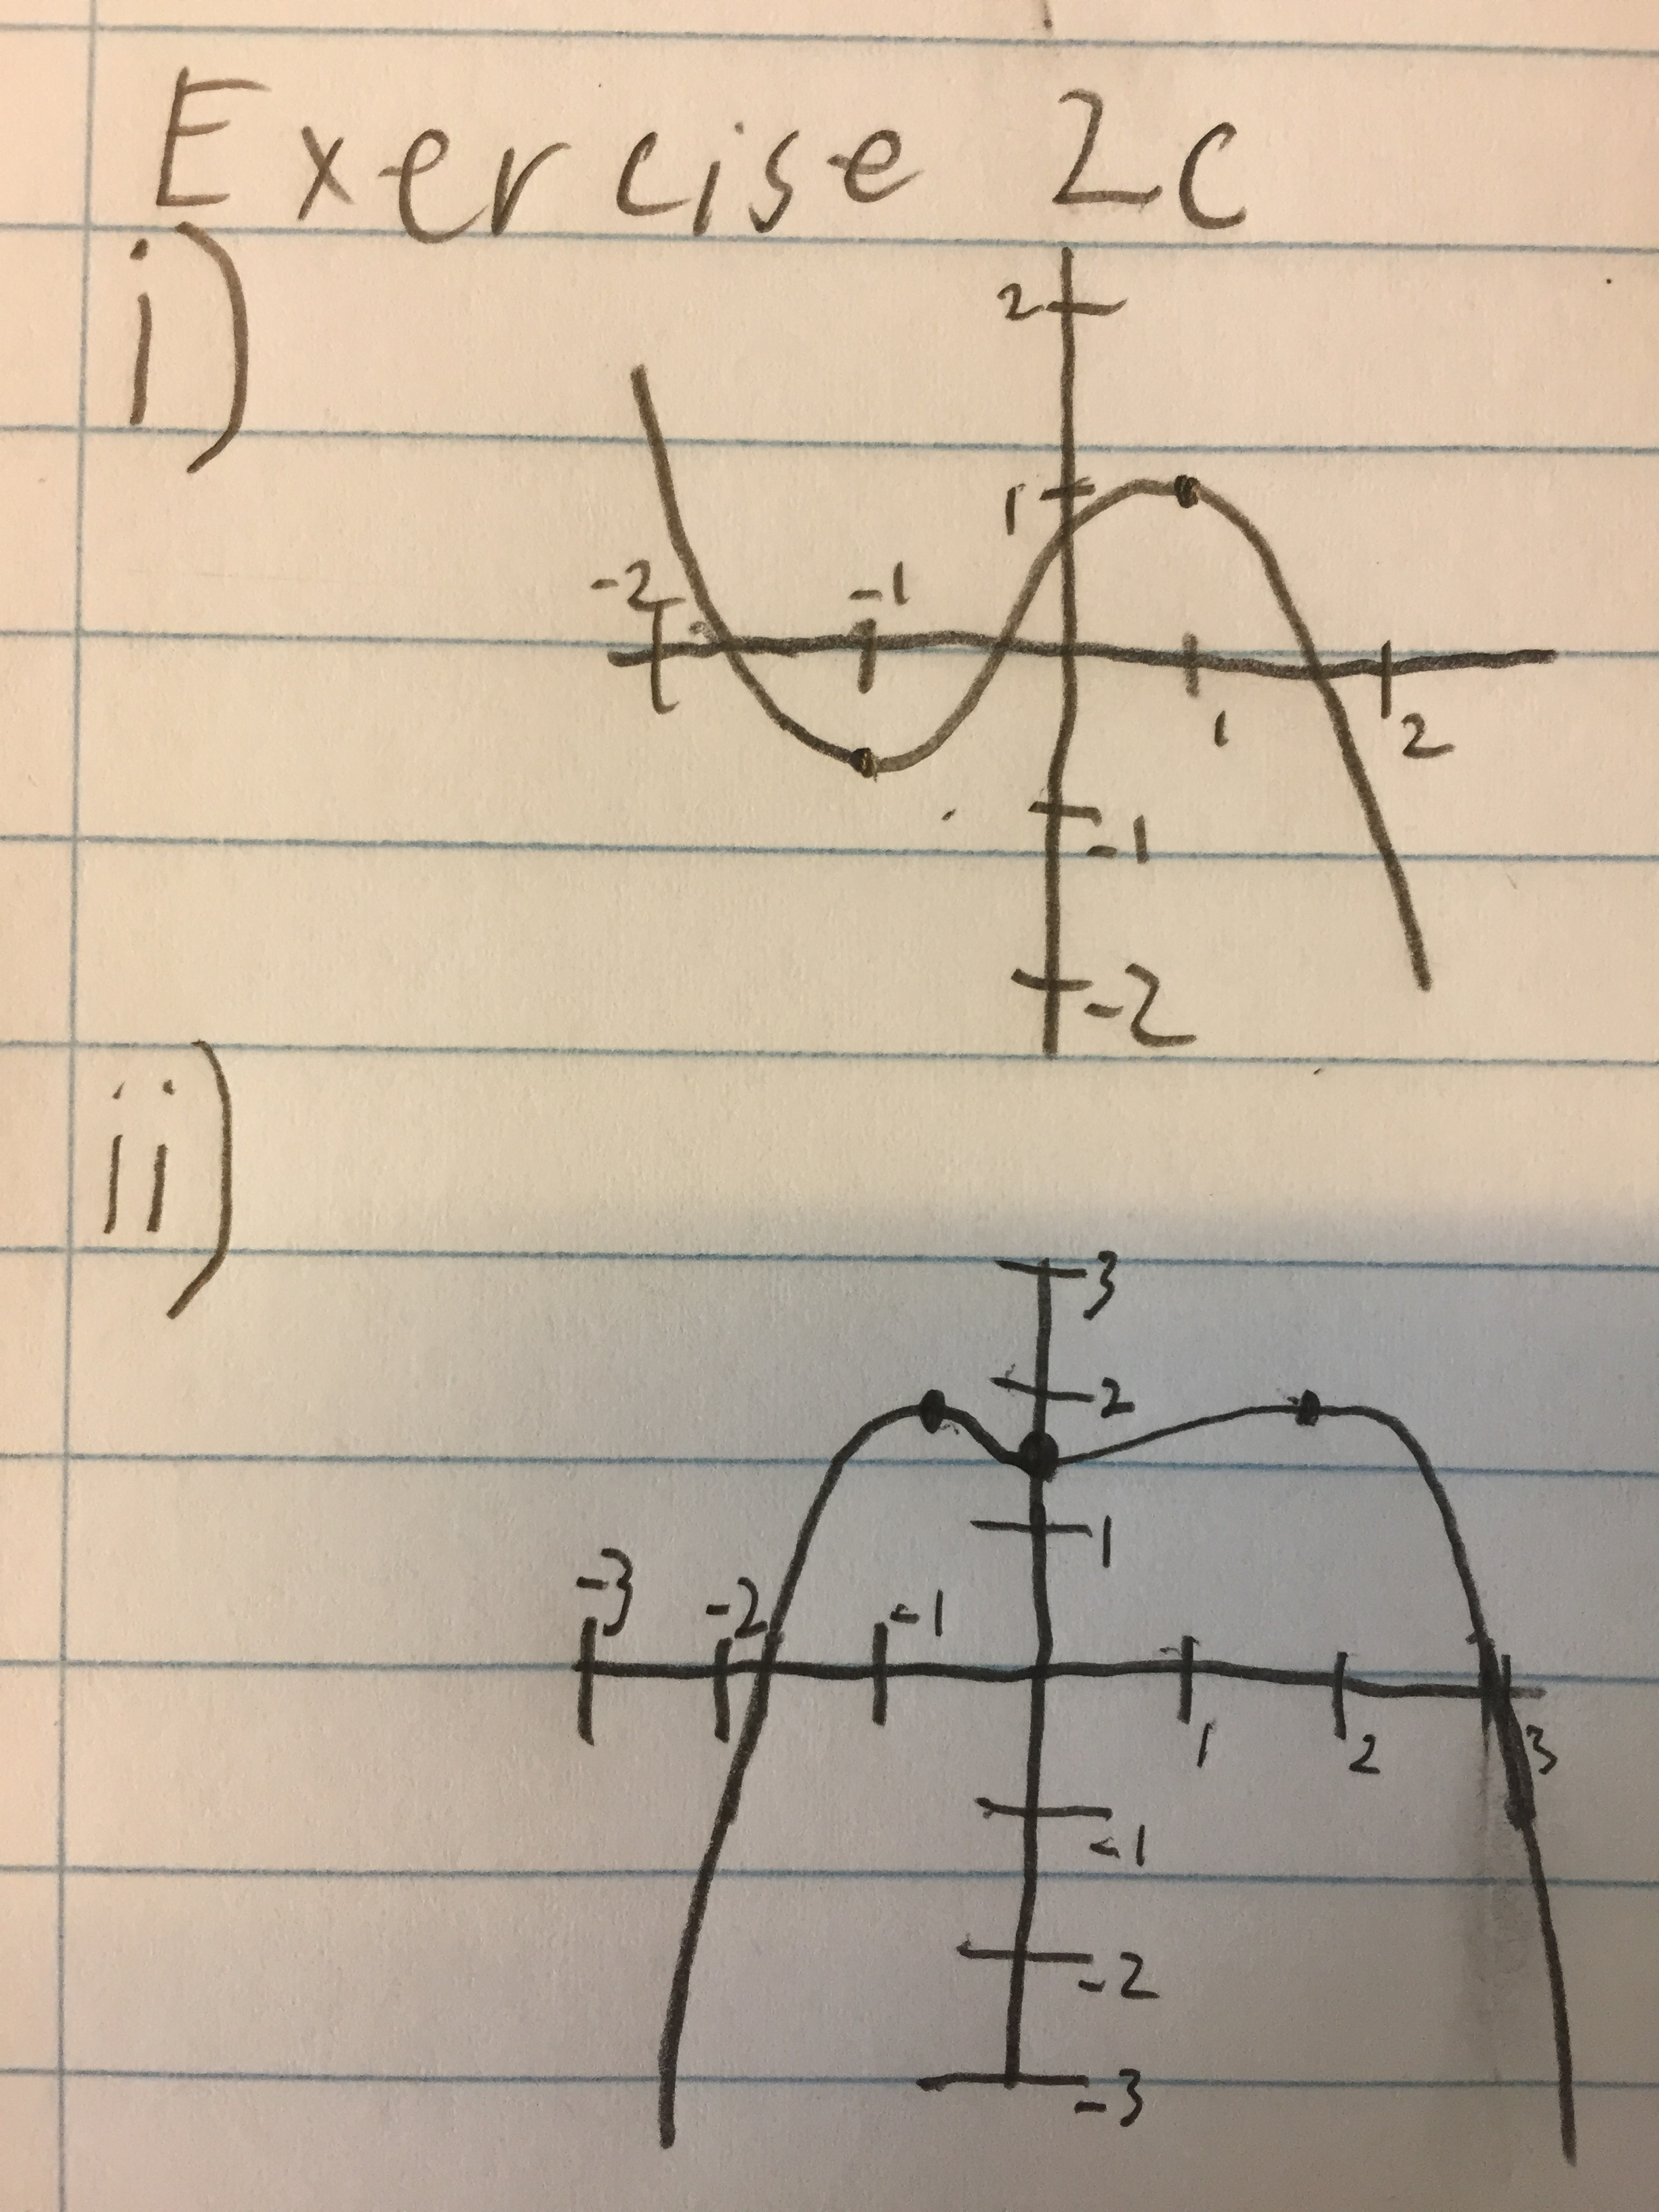 Exercise 2c
i)
2
1
-2 -1
1 2
-1
-2
ii)
3
2
1
-3 -2 -1
1 2 3
-1
-2
-3